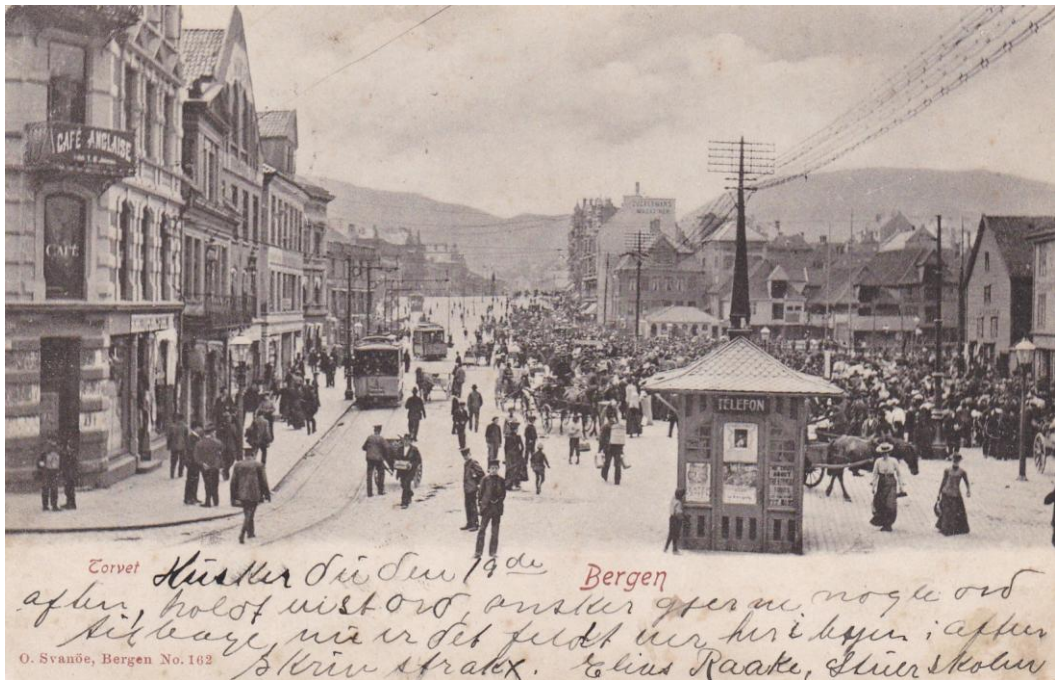 CAFÉ ANGLAISE
CAFÉ
TELEFON
Torvet
Bergen
Husker du den 19de
aften, holdt mit ord, ønsker gjerne nogle ord
tilbage, nu er det her i byen i aften
Skriv strakx. Elias Raake, Stuerskolen
O. Svanöe, Bergen No. 162